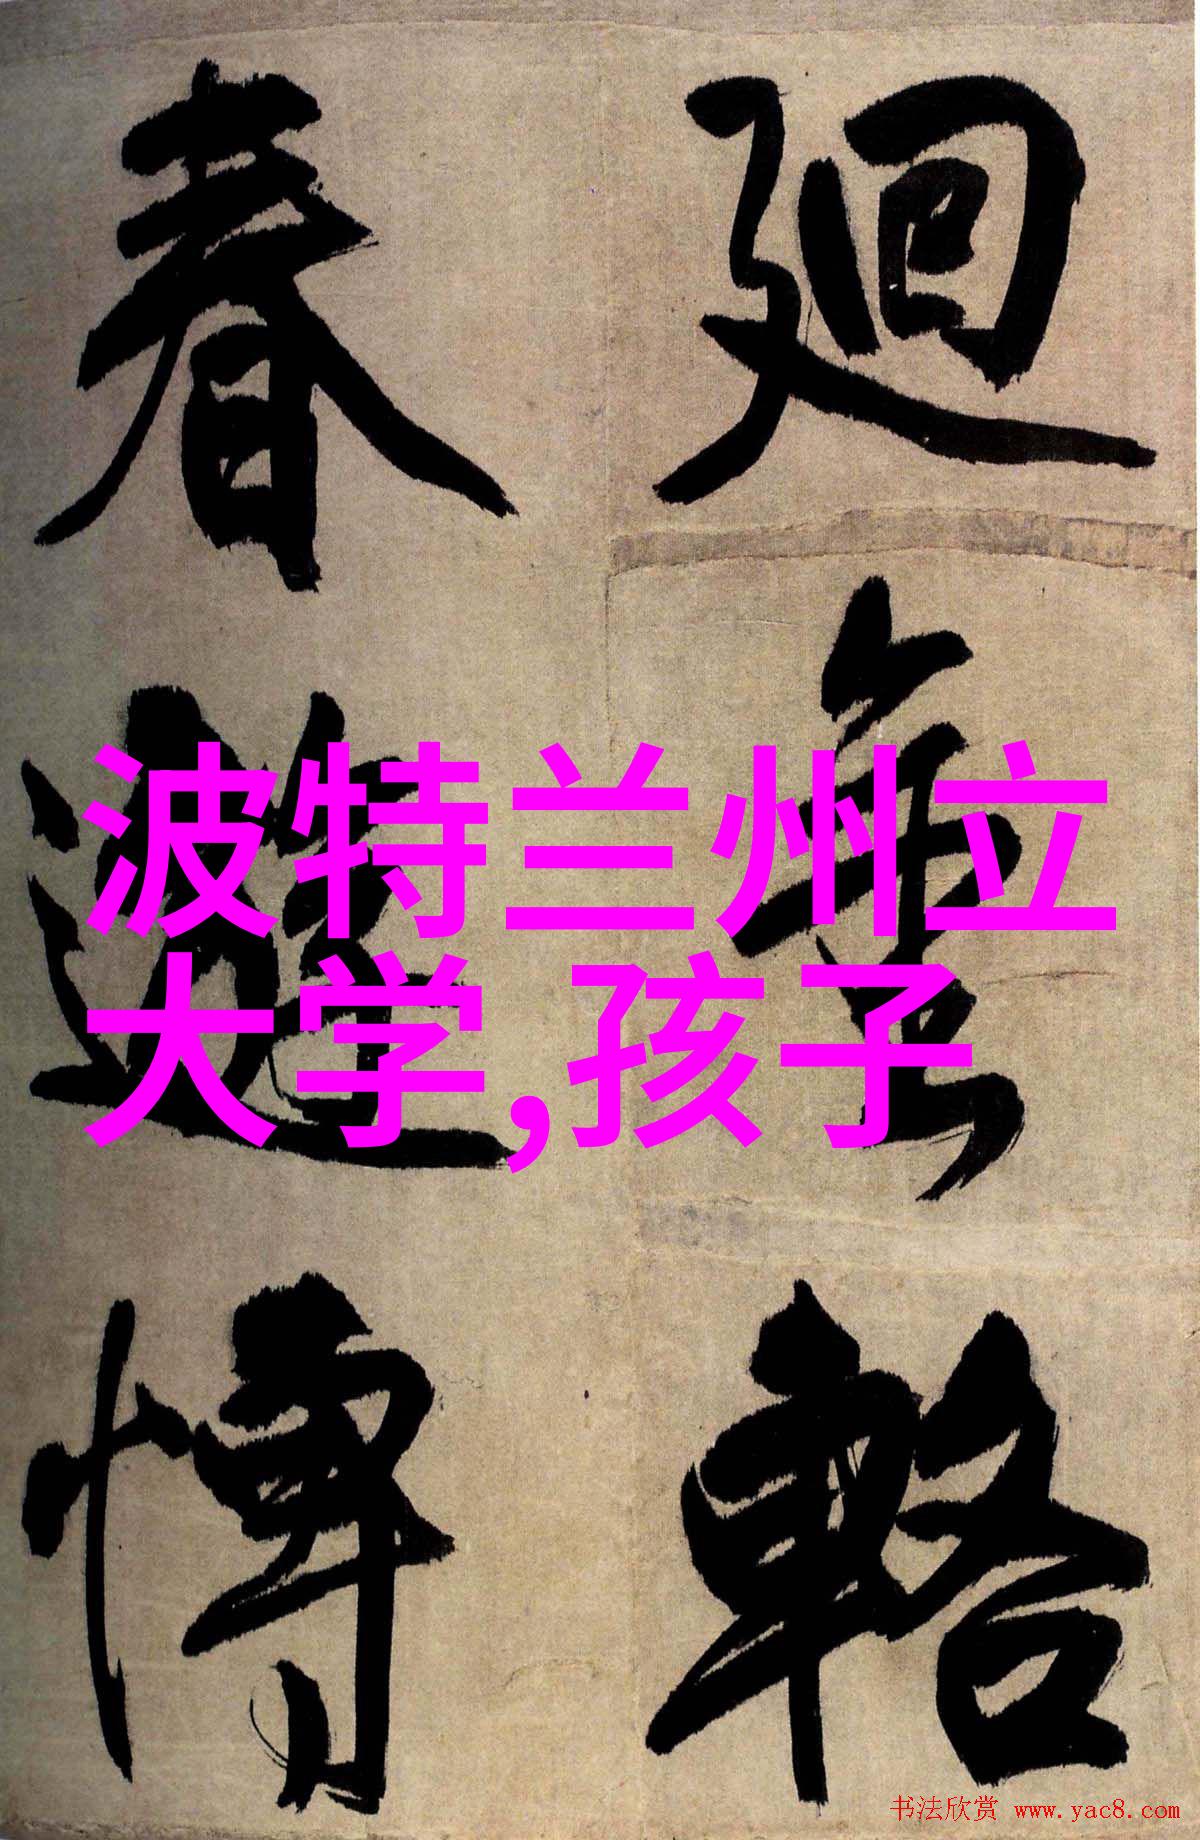 廻
輅
春
愽
波特兰州立
大学,孩子
书法欣赏 www.yac8.com